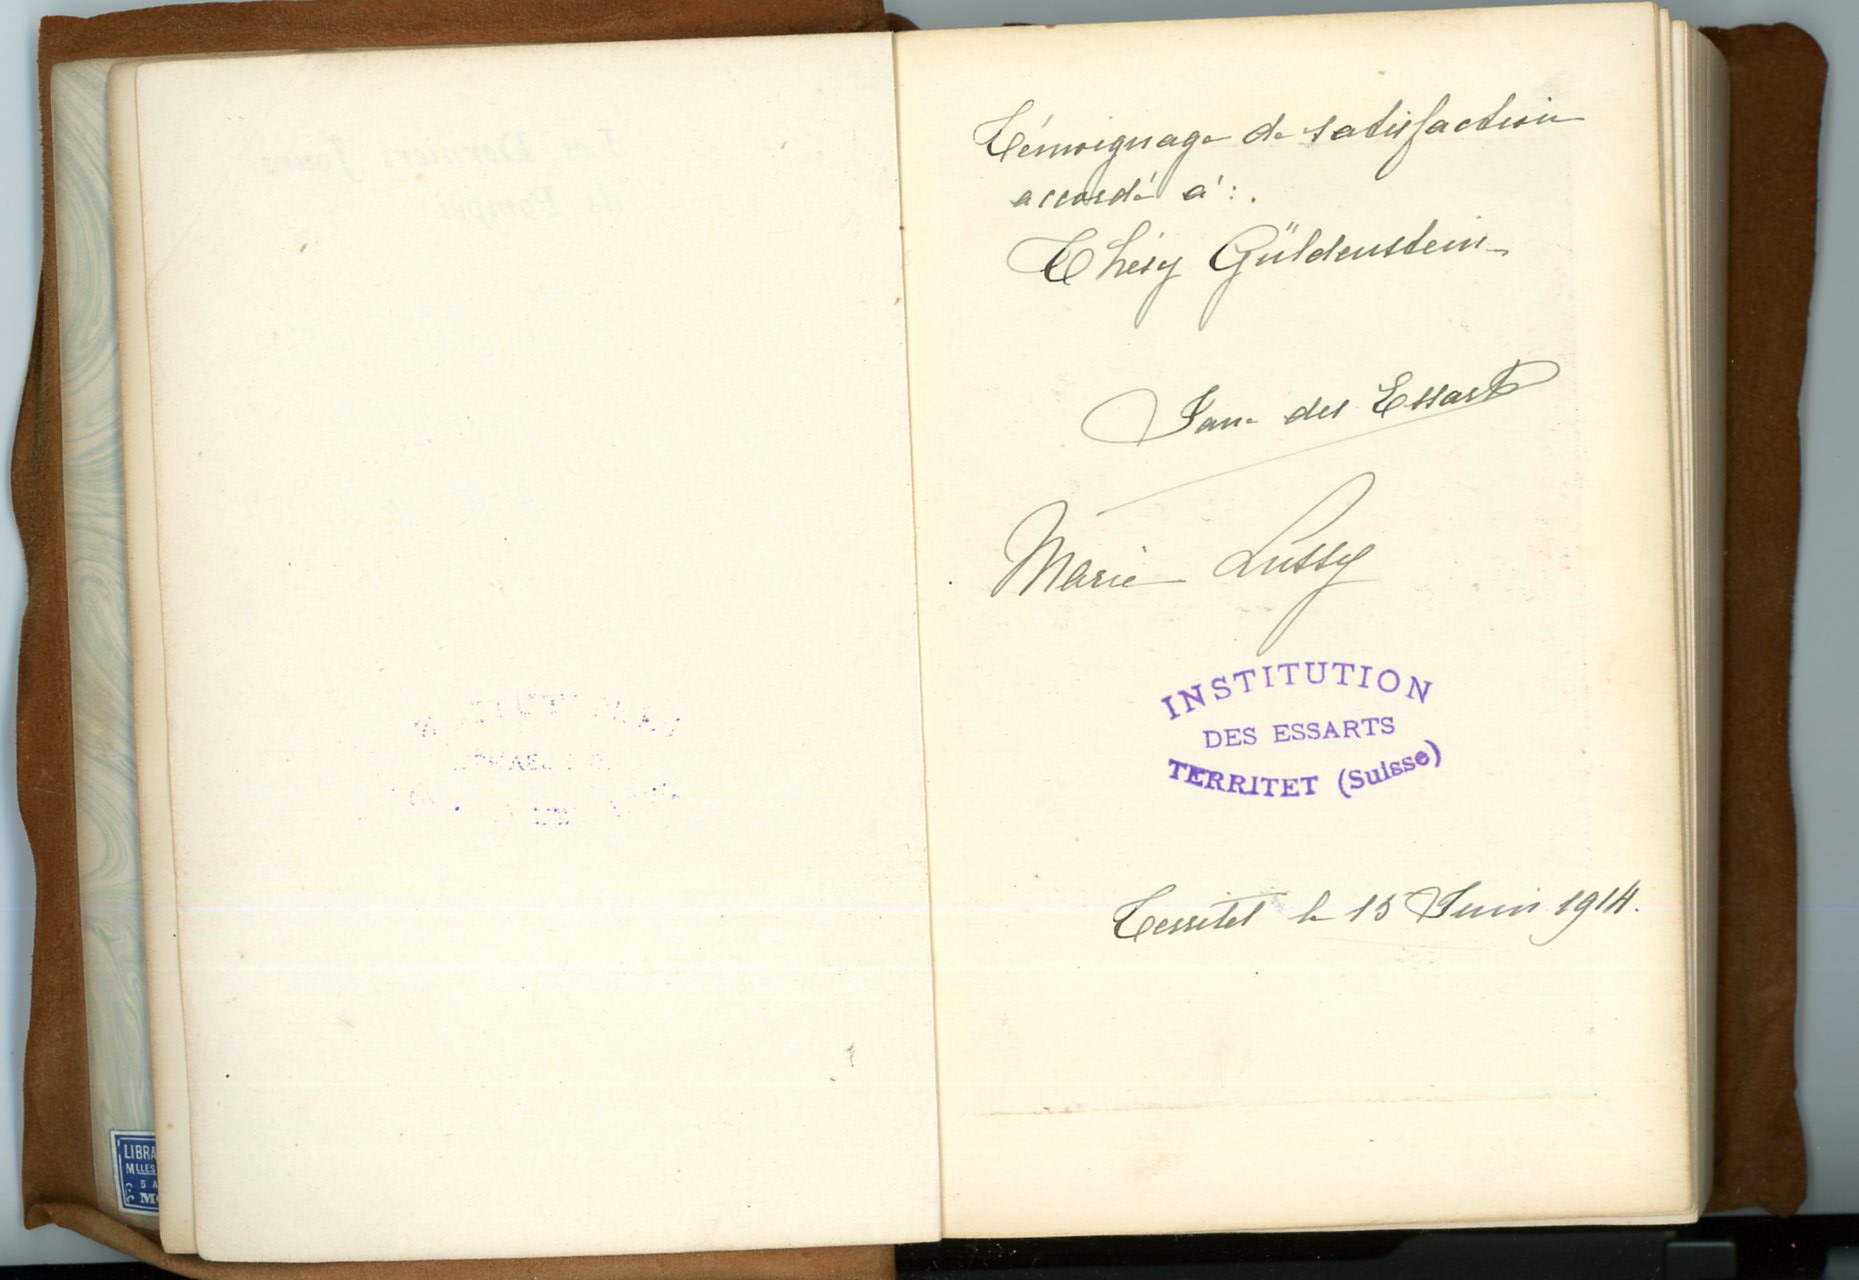 Les Derniers Jours
de Pompéi
LIBRA
MLLES
5 A
Témoignage de satisfaction
accordé à :
Thésy Güldenstein
des Essarts
Marie Lussy
INSTITUTION
DES ESSARTS
TERRITET (Suisse)
Territet le 15 Juin 1914.